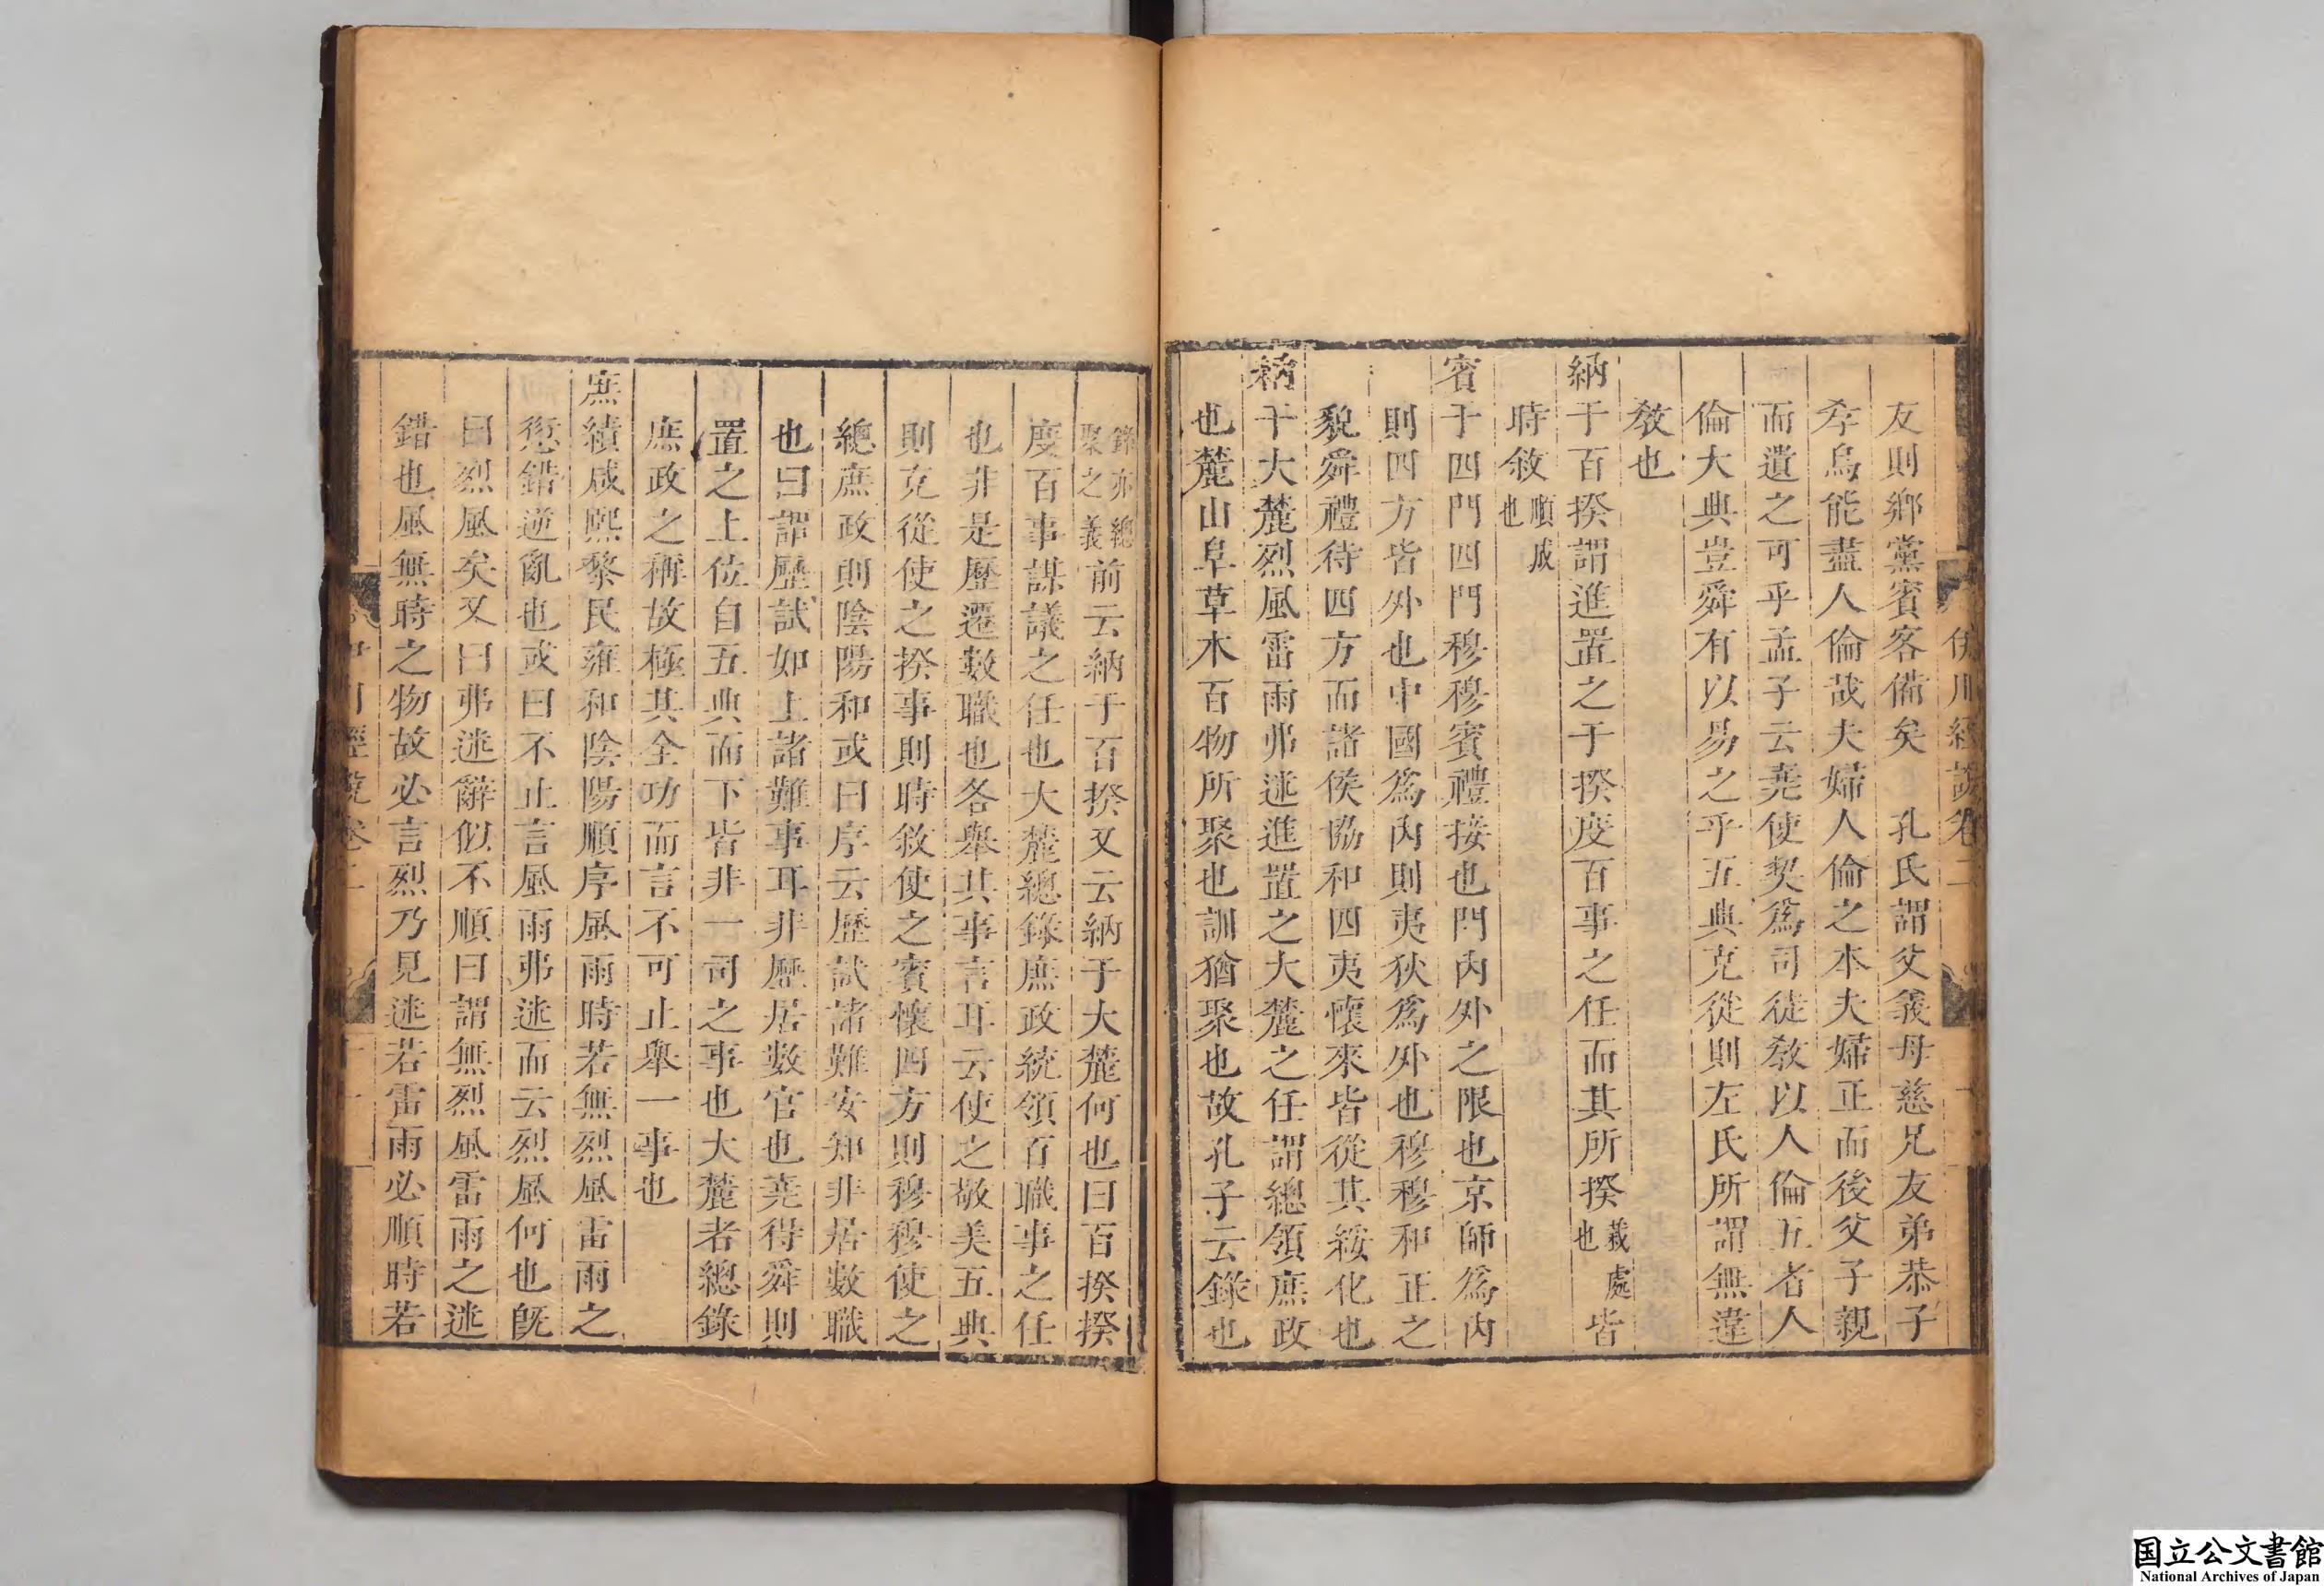 伊川經說卷二
友則鄉黨賓客備矣　孔氏謂父義母慈兄友弟恭子
孝烏能盡人倫哉夫婦人倫之本夫婦正而後父子親
而遺之可乎孟子云堯使契爲司徒敎以人倫五者人
倫大典豈舜有以易之乎五典克從則左氏所謂無違
敎也
納于百揆謂進置之于揆度百事之任而其所揆裁處也皆
時敘順成也
賓于四門四門穆穆賓禮接也門內外之限也京師爲內
則四方皆外也中國爲內則夷狄爲外也穆穆和正之
貌舜禮待四方而諸侯協和四夷懷來皆從其綏化也
納于大麓烈風雷雨弗迷進置之大麓之任謂總領庶政
也麓山阜草木百物所聚也訓猶聚也故孔子云錄也
錄亦總聚之義前云納于百揆又云納于大麓何也曰百揆揆
度百事謀議之任也大麓總錄庶政統領百職事之任
也非是歷遷數職也各舉其事言耳云使之敬美五典
則克從使之揆事則時敘使之賓懷四方則穆穆使之
總庶政則陰陽和或曰序云歷試諸難安知非居數職
也曰謂歷試如上諸難事耳非歷居數官也堯得舜則
置之上位自五典而下皆非一司之事也大麓者總錄
庶政之稱故極其全功而言不可止舉一事也
庶績咸熙黎民雍和陰陽順序風雨時若無烈風雷雨之
愆錯逆亂也或曰不止言風雨弗迷而云烈風何也旣
曰烈風矣又曰弗迷辭似不順曰謂無烈風雷雨之迷
錯也風無時之物故必言烈乃見迷若雷雨必順時若
国立公文書館
National Archives of Japan